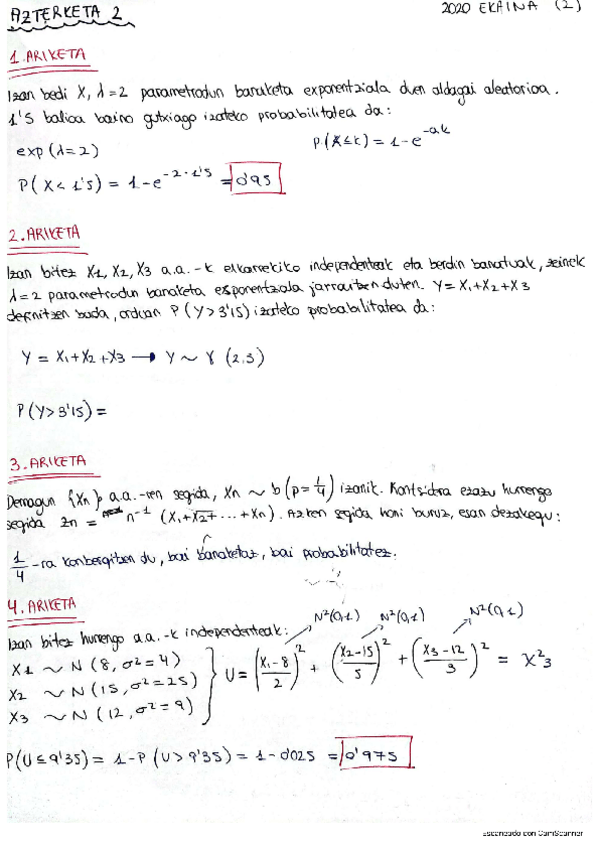 AZTERKETA 2
2020 EKAINA (2)
1. ARIKETA
Izan bedi X, λ=2 parametrodun banaketa exponentziala duen aldagai aleatorioa.
1'5 balioa baino gutxiago izateko probabilitatea da:
exp (λ=2)
P(X≤k) = 1-e^-ak
P(X< 1'5) = 1-e^-2·1'5 = 0'95
2. ARIKETA
Izan bitez X1, X2, X3 a.a.-k elkarrekiko independenteak eta berdin banatuak, zeinek
λ=2 parametrodun banaketa esponentziala jarraitzen duten. Y= X1+X2+X3
definitzen bada, orduan P(Y>3'15) izateko probabilitatea da:
Y = X1+X2+X3 → Y ~ γ (2,3)
P(Y>3'15) =
3. ARIKETA
Demagun {Xn} a.a.-ren segida, Xn ~ b(p=1/4) izanik. Kontsidera ezazu hurrengo
segida Zn = n^-1 (X1+X2+...+Xn). Azken segida honi buruz, esan dezakegu:
1/4 -ra konbergitzen du, bai banaketaz, bai probabilitatez.
4. ARIKETA
N²(0,1) N²(0,1) N²(0,1)
Izan bitez hurrengo a.a.-k independenteak:
X1 ~ N (8, σ²=4)
X2 ~ N (15, σ²=25)
X3 ~ N (12, σ²=9)
U = (X1-8/2)² + (X2-15/5)² + (X3-12/3)² = X²3
P(U≤9'35) = 1-P(U>9'35) = 1-0'025 = 0'975
Escaneado con CamScanner